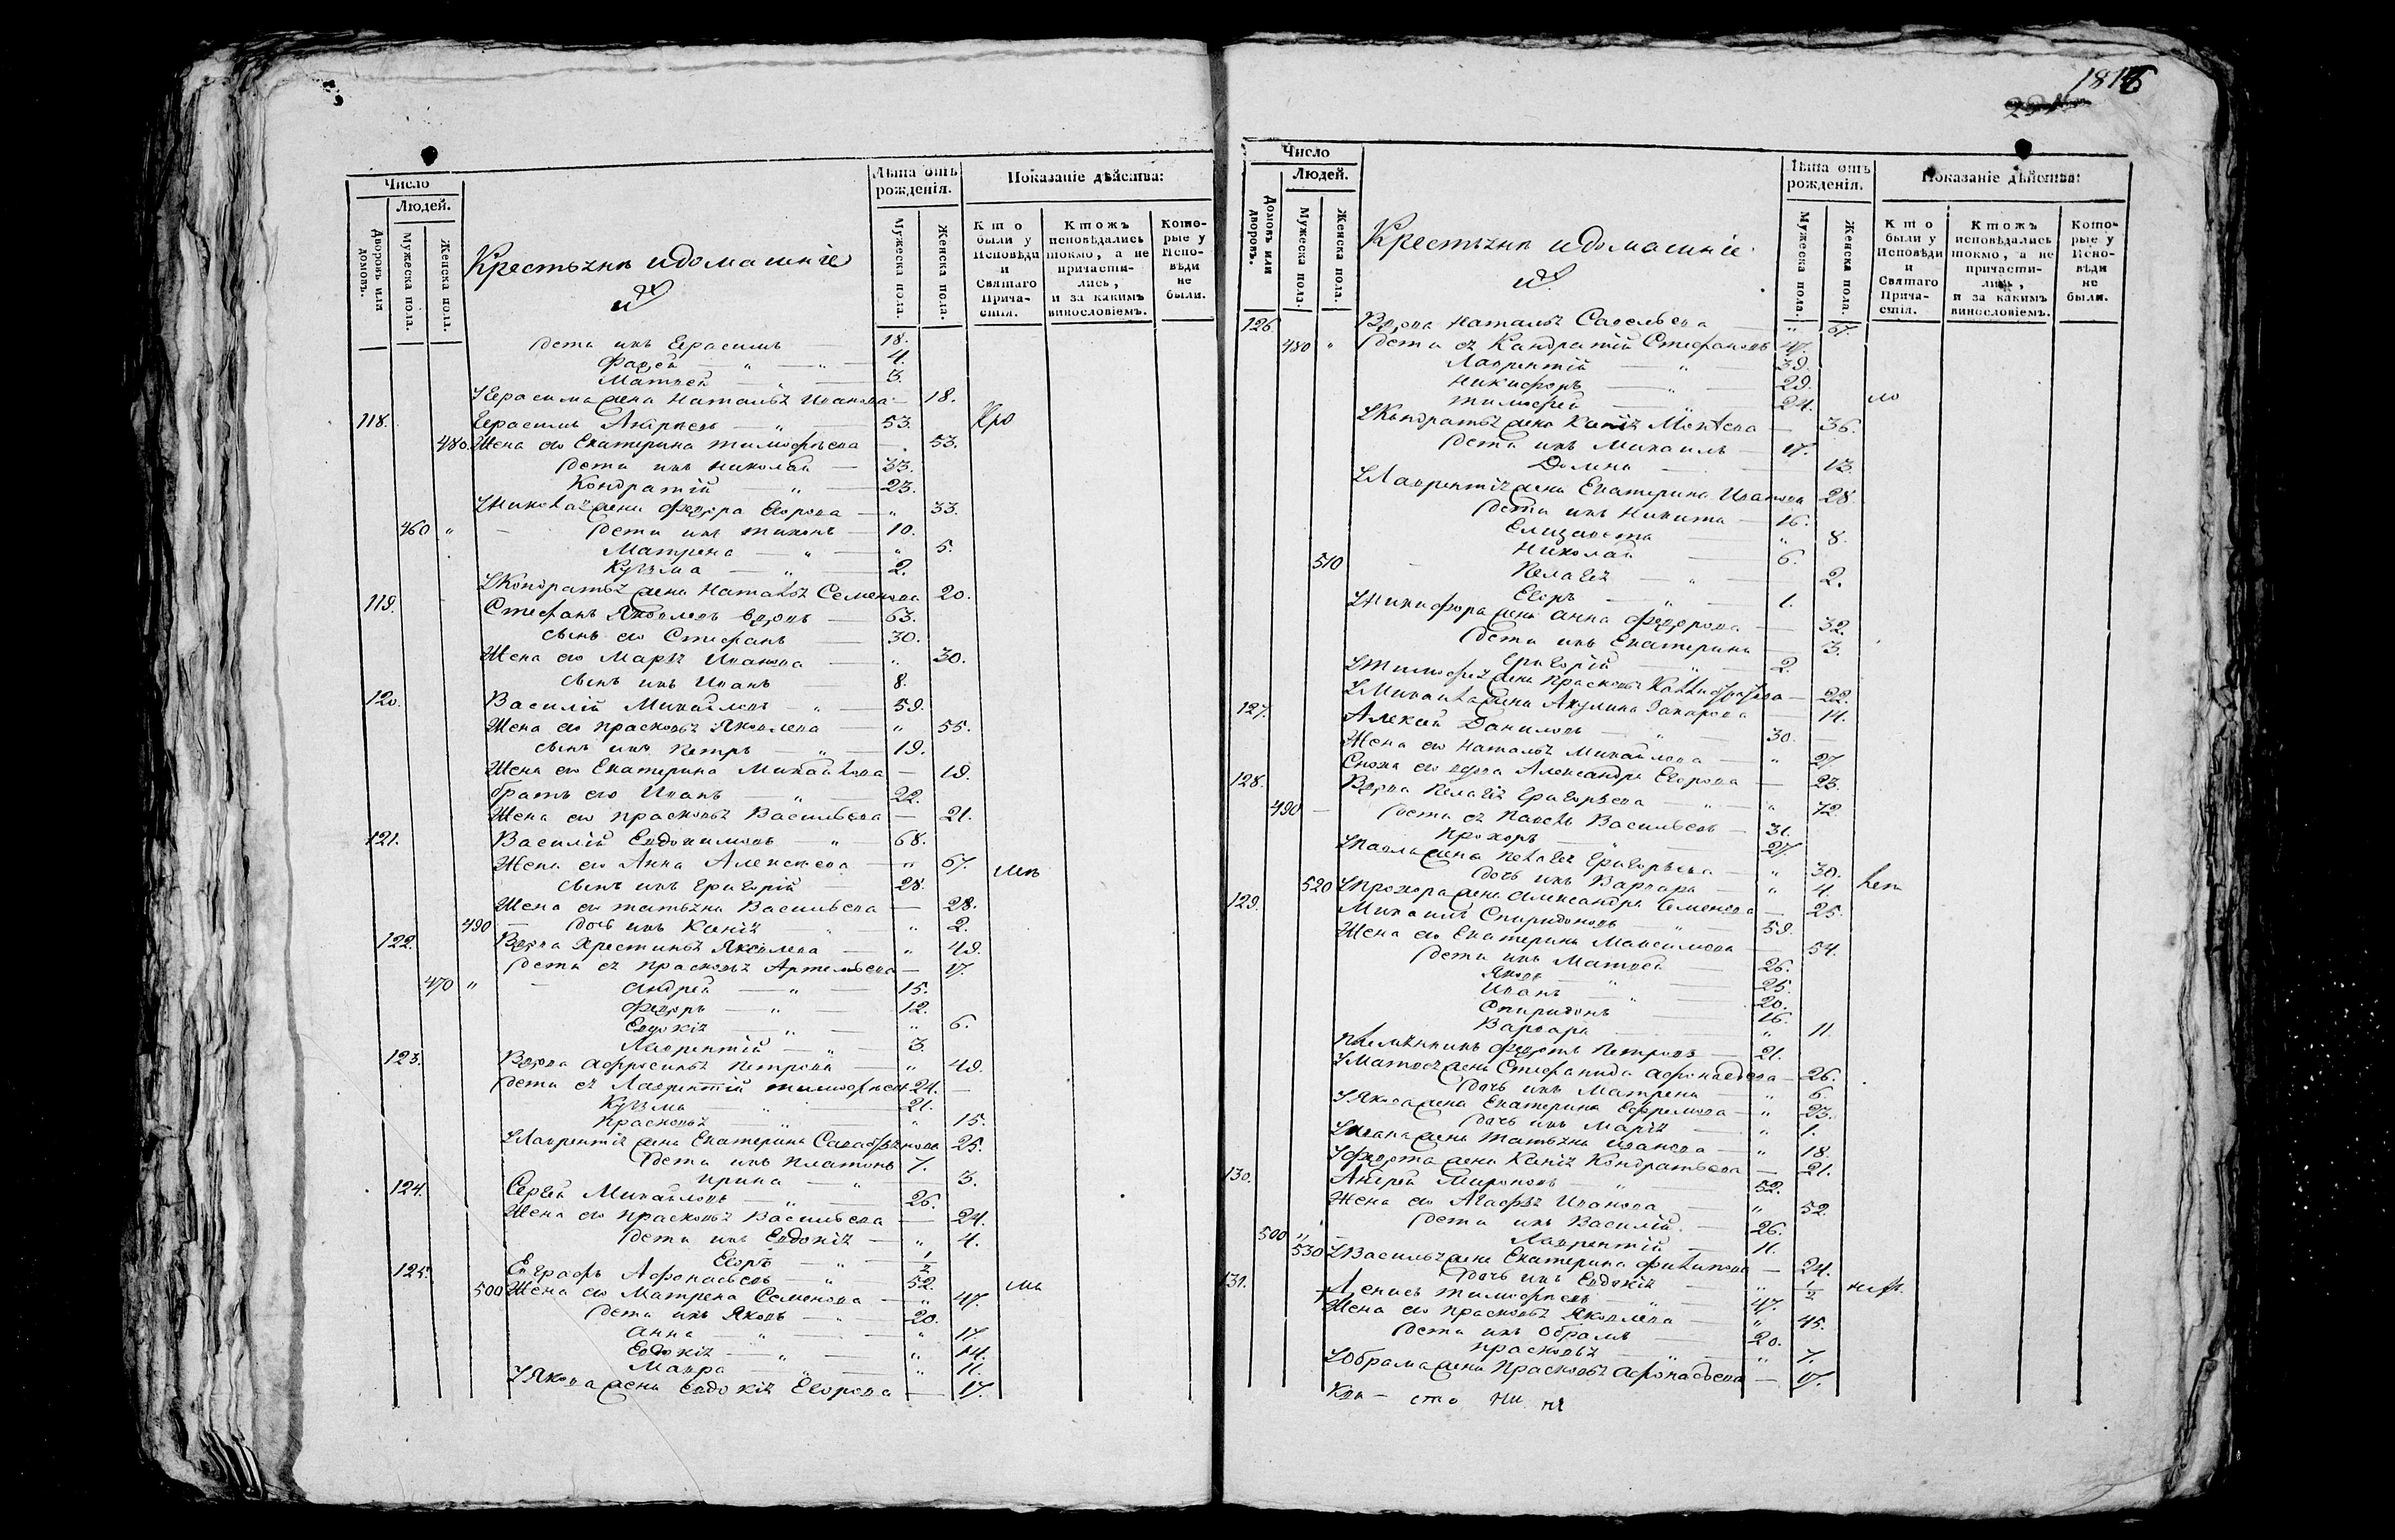 Число
Людей.
Дворовъ или домовъ.
Мужеска пола.
Женска пола.
Крестьяне и домашніе
ихъ
Лѣта отъ рожденія.
Мужеска пола.
Женска пола.
Показаніе дѣйства:
Кто были у Исповѣди и Святаго Причастія.
Ктожъ исповѣдались токмо, а не причастились, и за какимъ винословіемъ.
Которые у Исповѣди не были.
дети ихъ Герасимъ — 18.
Фадей — „ — „ — 4.
Матвей — „ — 3.
УГерасима жена Наталья Иванова — 18.
118. Герасимъ Андреевъ — „ — 53.
480. Жена его Екатерина Тимофѣева — 53.
дети ихъ Николай — 33.
Кондратій — „ — 23.
УНиколая жена Федора Егорова — „ 33.
460 „ — дети ихъ Тихонъ — 10.
Матрена — „ — „ 5.
Кузма — „ 2.
УКондратья жена Наталья Семенова 20.
119. Стефанъ Яковлевъ вдовъ — 63.
сынъ его Стефанъ — 30.
Жена его Марья Иванова — „ 30.
сынъ ихъ Иванъ — 8.
120. Василій Михайловъ — „ — 59.
Жена его Прасковья Яковлева „ 55.
сынъ ихъ Петръ — „ — 19.
Жена его Екатерина Михайлова — 19.
братъ его Иванъ — „ — 22.
Жена его Прасковья Васильева — 21.
121. Василій Евдокимовъ — „ — 68.
Жена его Анна Алексеева — „ 67.
сынъ ихъ Григорій — 28.
Жена его Татьяна Васильева — 28.
490 — дочь ихъ Ксенія „ „ 2.
122. Вдова Христинья Яковлева — „ 49.
дети ея Прасковья Артемьева — 17.
470 „ — Андрей — „ — 15.
Федоръ — „ — 12.
Евдокія — „ — „ 6.
Лаврентій — „ — 3.
123. Вдова Афросинья Петрова — „ 49.
дети ея Лаврентій Тимофѣевъ 24. —
Кузма — „ — 21.
Прасковья „ „ 15.
УЛаврентія жена Екатерина 25.
дети ихъ Платонъ 7.
Ирина — „ — 3.
124. Сергей Михайловъ — „ — 26.
Жена его Прасковья Васильева — 24.
дети ихъ Евдокія — „ 4.
Егоръ — „ — 1/2
125. Евграфъ Афонасьевъ — „ 52.
500 Жена его Матрена Семенова — „ 47.
дети ихъ Яковъ — „ 20.
Анна „ — „ 17.
Евдокія — „ — „ 14.
Мавра — „ — „ 11.
УЯкова жена Евдокія Егорова — 17.
1816
Число
Людей.
Домовъ или дворовъ.
Мужеска пола.
Женска пола.
Крестьяне и домашніе
ихъ
Лѣта отъ рожденія.
Мужеска пола.
Женска пола.
Показаніе дѣйства:
Кто были у Исповѣди и Святаго Причастія.
Ктожъ исповѣдались токмо, а не причастились, и за какимъ винословіемъ.
Которые у Исповѣди не были.
126 Вдова Наталья Савельева — „ 67.
480 „ дети ея Кандратій Стефановъ 47.
Лаврентій — „ — 39.
Никифоръ — „ — 29.
Тимофей — „ — 24.
УКондратья жена Ксенія — 36.
дети ихъ Михаилъ — 17.
— 13.
УЛаврентія жена Екатерина Иванова 28.
дети ихъ Никита — 16.
Елизавета — „ 8.
510 — Николай — 6.
Пелагея — „ — 2.
Егоръ — „ — 1.
УНикифора жена Анна Федорова — 32.
дети ихъ Екатерина — 3.
Григорій — „ — 2.
УТимофея жена Прасковья — 22.
УМихаила жена Акулина Захарова — 14.
127. Алексей Даниловъ — „ — 30. —
Жена его Наталья Михайлова — „ 27.
Сноха его вдова Александра Егорова — 23.
128. Вдова Пелагея Григорьева „ — „ 72.
490 — дети ея Павелъ Васильевъ — 31.
Прохоръ — „ — 27.
УПавла жена Пелагея Григорьева — „ 30.
дочь ихъ Варвара — „ 4.
520 УПрохора жена Александра Семенова — 25.
129. Михаилъ Спиридоновъ — „ — 59.
Жена его Екатерина Максимова — 54.
дети ихъ Матвей — 26.
Яковъ — „ — 25.
Иванъ — „ — 20.
Спиридонъ — 16.
Варвара — „ 11.
Племянникъ Федотъ Петровъ — 21.
УМатвея жена Стефанида Афонасьева — 26.
дочь ихъ Матрена — „ 6.
УЯкова жена Екатерина Ефремова — „ 23.
дочь ихъ Марья — „ 1.
УИвана жена Татьяна Иванова — „ 18.
УФедота жена Ксенія Кондратьева — 21.
130. Андрей Мироновъ — „ — 52.
Жена его Агафья Иванова — „ 52.
дети ихъ Василій — 26.
500 „ — Лаврентій — 11.
530 УВасилья жена Екатерина Филипова — 24.
дочь ихъ Евдокія — „ 1/2
131. Денисъ Тимофеевъ — „ — 47.
Жена его Прасковья Яковлева — „ 45.
дети ихъ Обрамъ — 20.
Прасковья — „ — „ 7.
УОбрама жена Прасковья Афонасьева — 17.